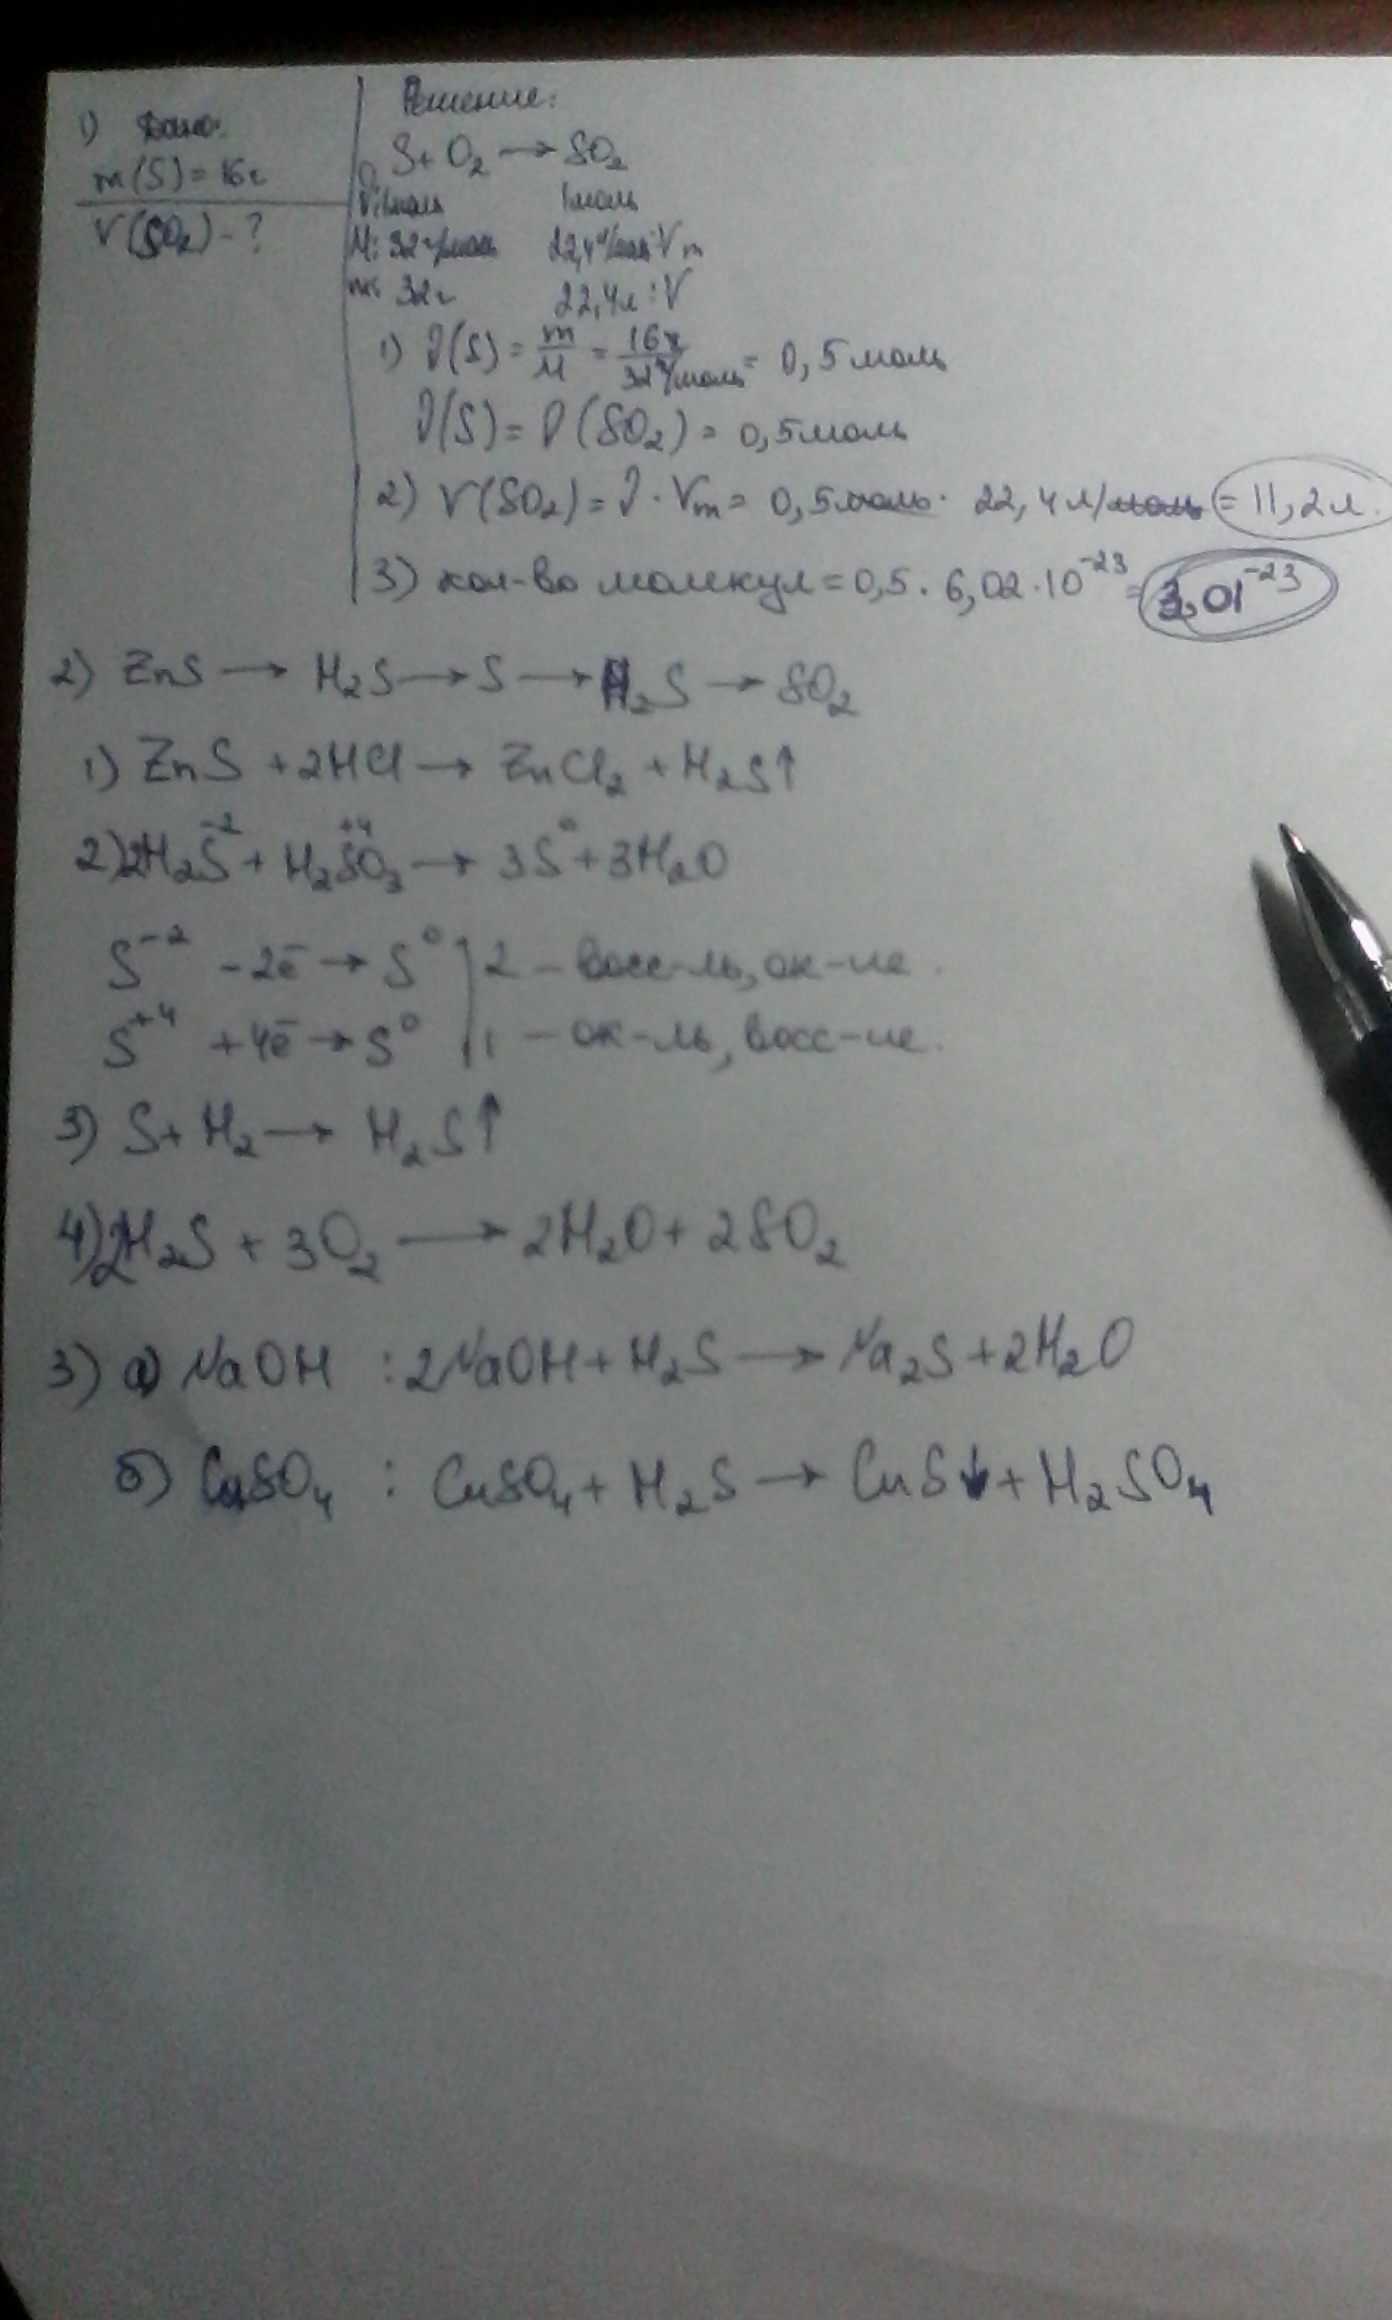 1) Дано:
m(S)=16г
V(SO₂)-?
Решение:
S+O₂→SO₂
ν:1моль 1моль
M: 32г/моль 22,4л/моль:Vm
m: 32г 22,4л:V
1) ν(S)=m/M=16г/32г/моль=0,5моль
ν(S)=ν(SO₂)=0,5моль
2) V(SO₂)=ν·Vm=0,5моль·22,4л/моль=11,2л.
3) кол-во молекул=0,5·6,02·10⁻²³=3,01⁻²³
2) ZnS→H₂S→S→H₂S→SO₂
1) ZnS+2HCl→ZnCl₂+H₂S↑
2) 2H₂S⁻²+H₂S⁺⁴O₃→3S⁰+3H₂O
S⁻² -2ē→S⁰ | 2 - восс-ль, ок-ие.
S⁺⁴ +4ē→S⁰ | 1 - ок-ль, восс-ие.
3) S+H₂→H₂S↑
4) 2H₂S+3O₂→2H₂O+2SO₂
3) а) NaOH : 2NaOH+H₂S→Na₂S+2H₂O
б) CuSO₄ : CuSO₄+H₂S→CuS↓+H₂SO₄